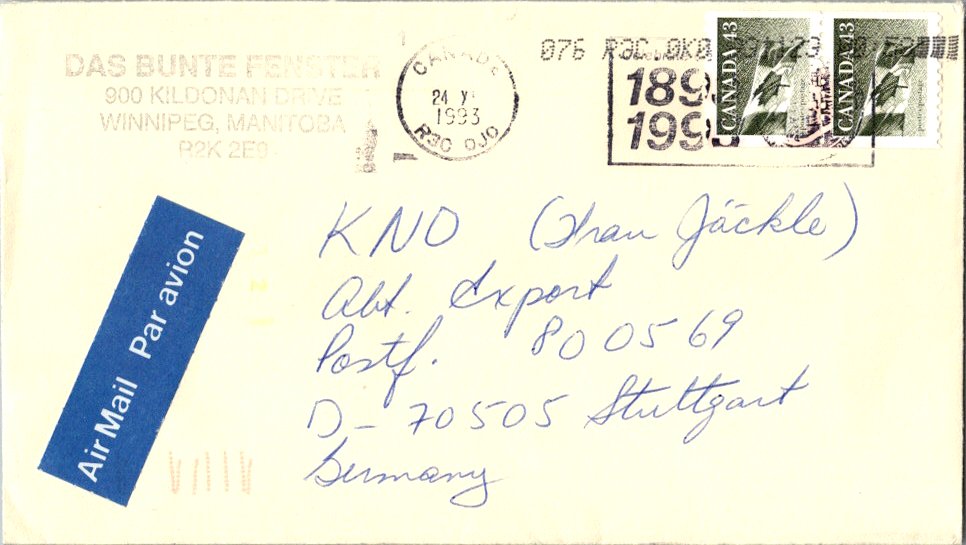 DAS BUNTE FENSTER
900 KILDONAN DRIVE
WINNIPEG, MANITOBA
R2K 2E9
CANADA
24
1993
R3C OJO
076 R3C 0K0
189
199
CANADA 43
CANADA 43
Air Mail Par avion
KNO (Frau Jäckle)
Abt. Export
Postf. 80 05 69
D- 70505 Stuttgart
Germany